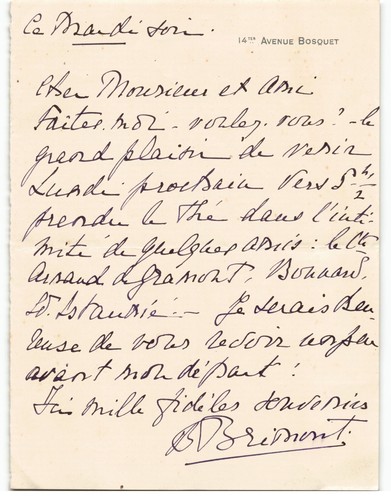 Ce Mardi soir.
14TER AVENUE BOSQUET
Cher Monsieur et Ami
Faites-moi - voulez-vous? - le
grand plaisir de venir
Lundi prochain vers 5 h 1/2
prendre le thé dans l'inti-
mité de quelques amis : le Cte
Armand de Gramont, Bonnard,
Ed. Estaunié. - Je serais heu-
reuse de vous revoir un peu
avant mon départ !
mille fidèles souvenirs
B Brimont.